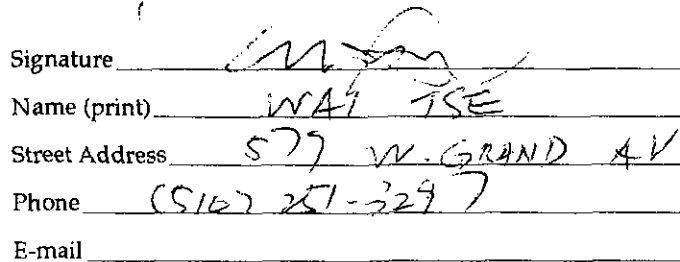 Signature
Name (print) WAI TSE
Street Address 577 W. GRAND AV
Phone (510) 251-3297
E-mail